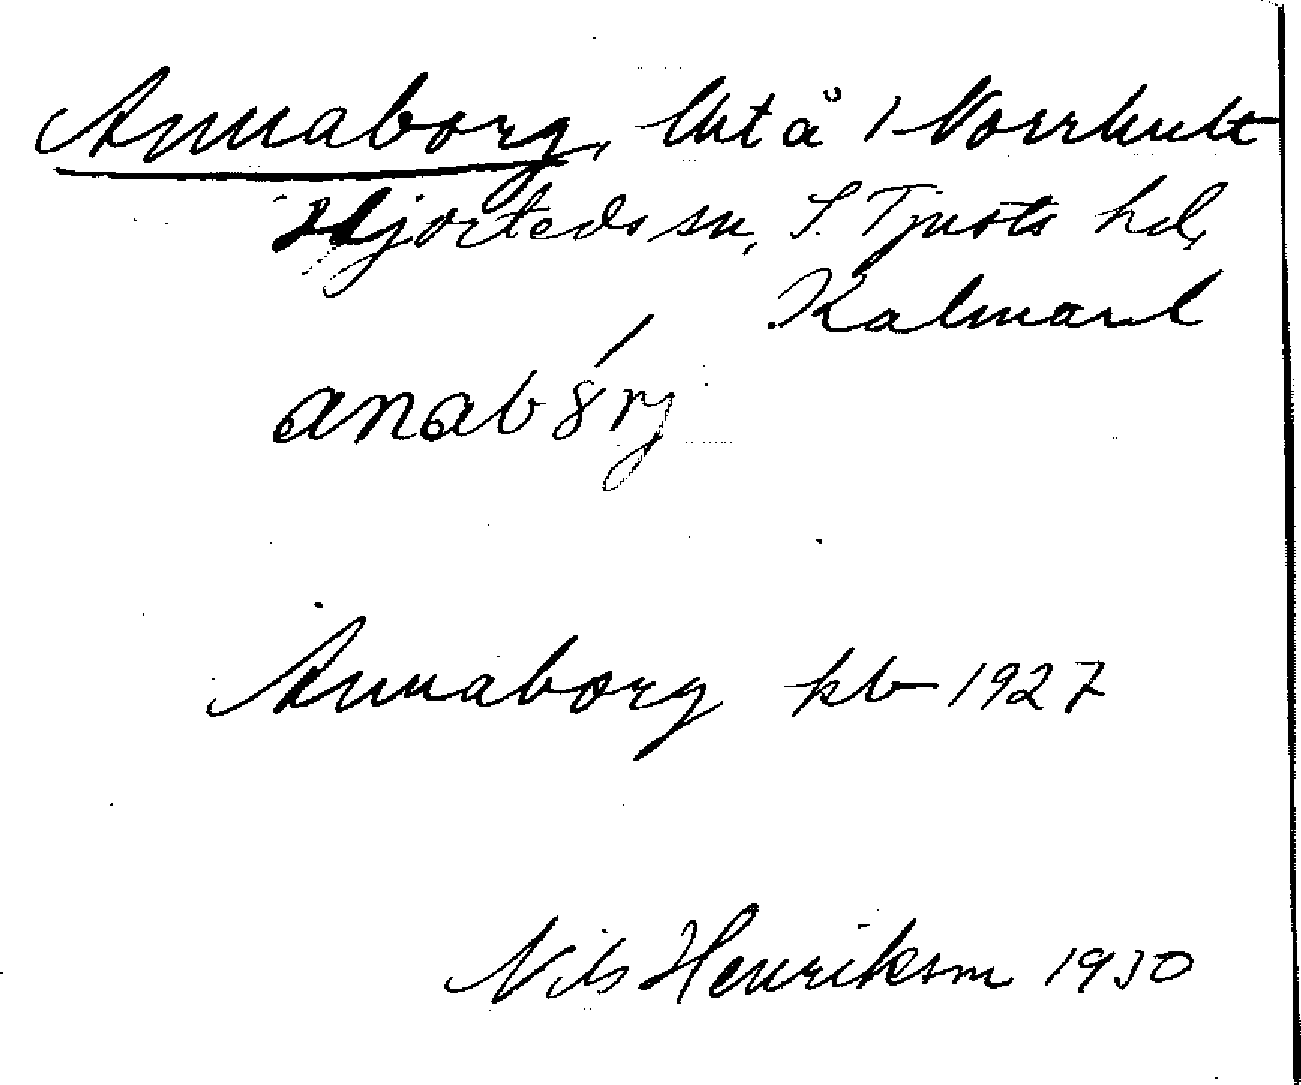 Annaborg, lht å 1 Norrhult
Hjorteds sn, S. Tjusts hd,
Kalmar l
anabȣ́rj
Annaborg kb 1927
Nils Henriksson 1930